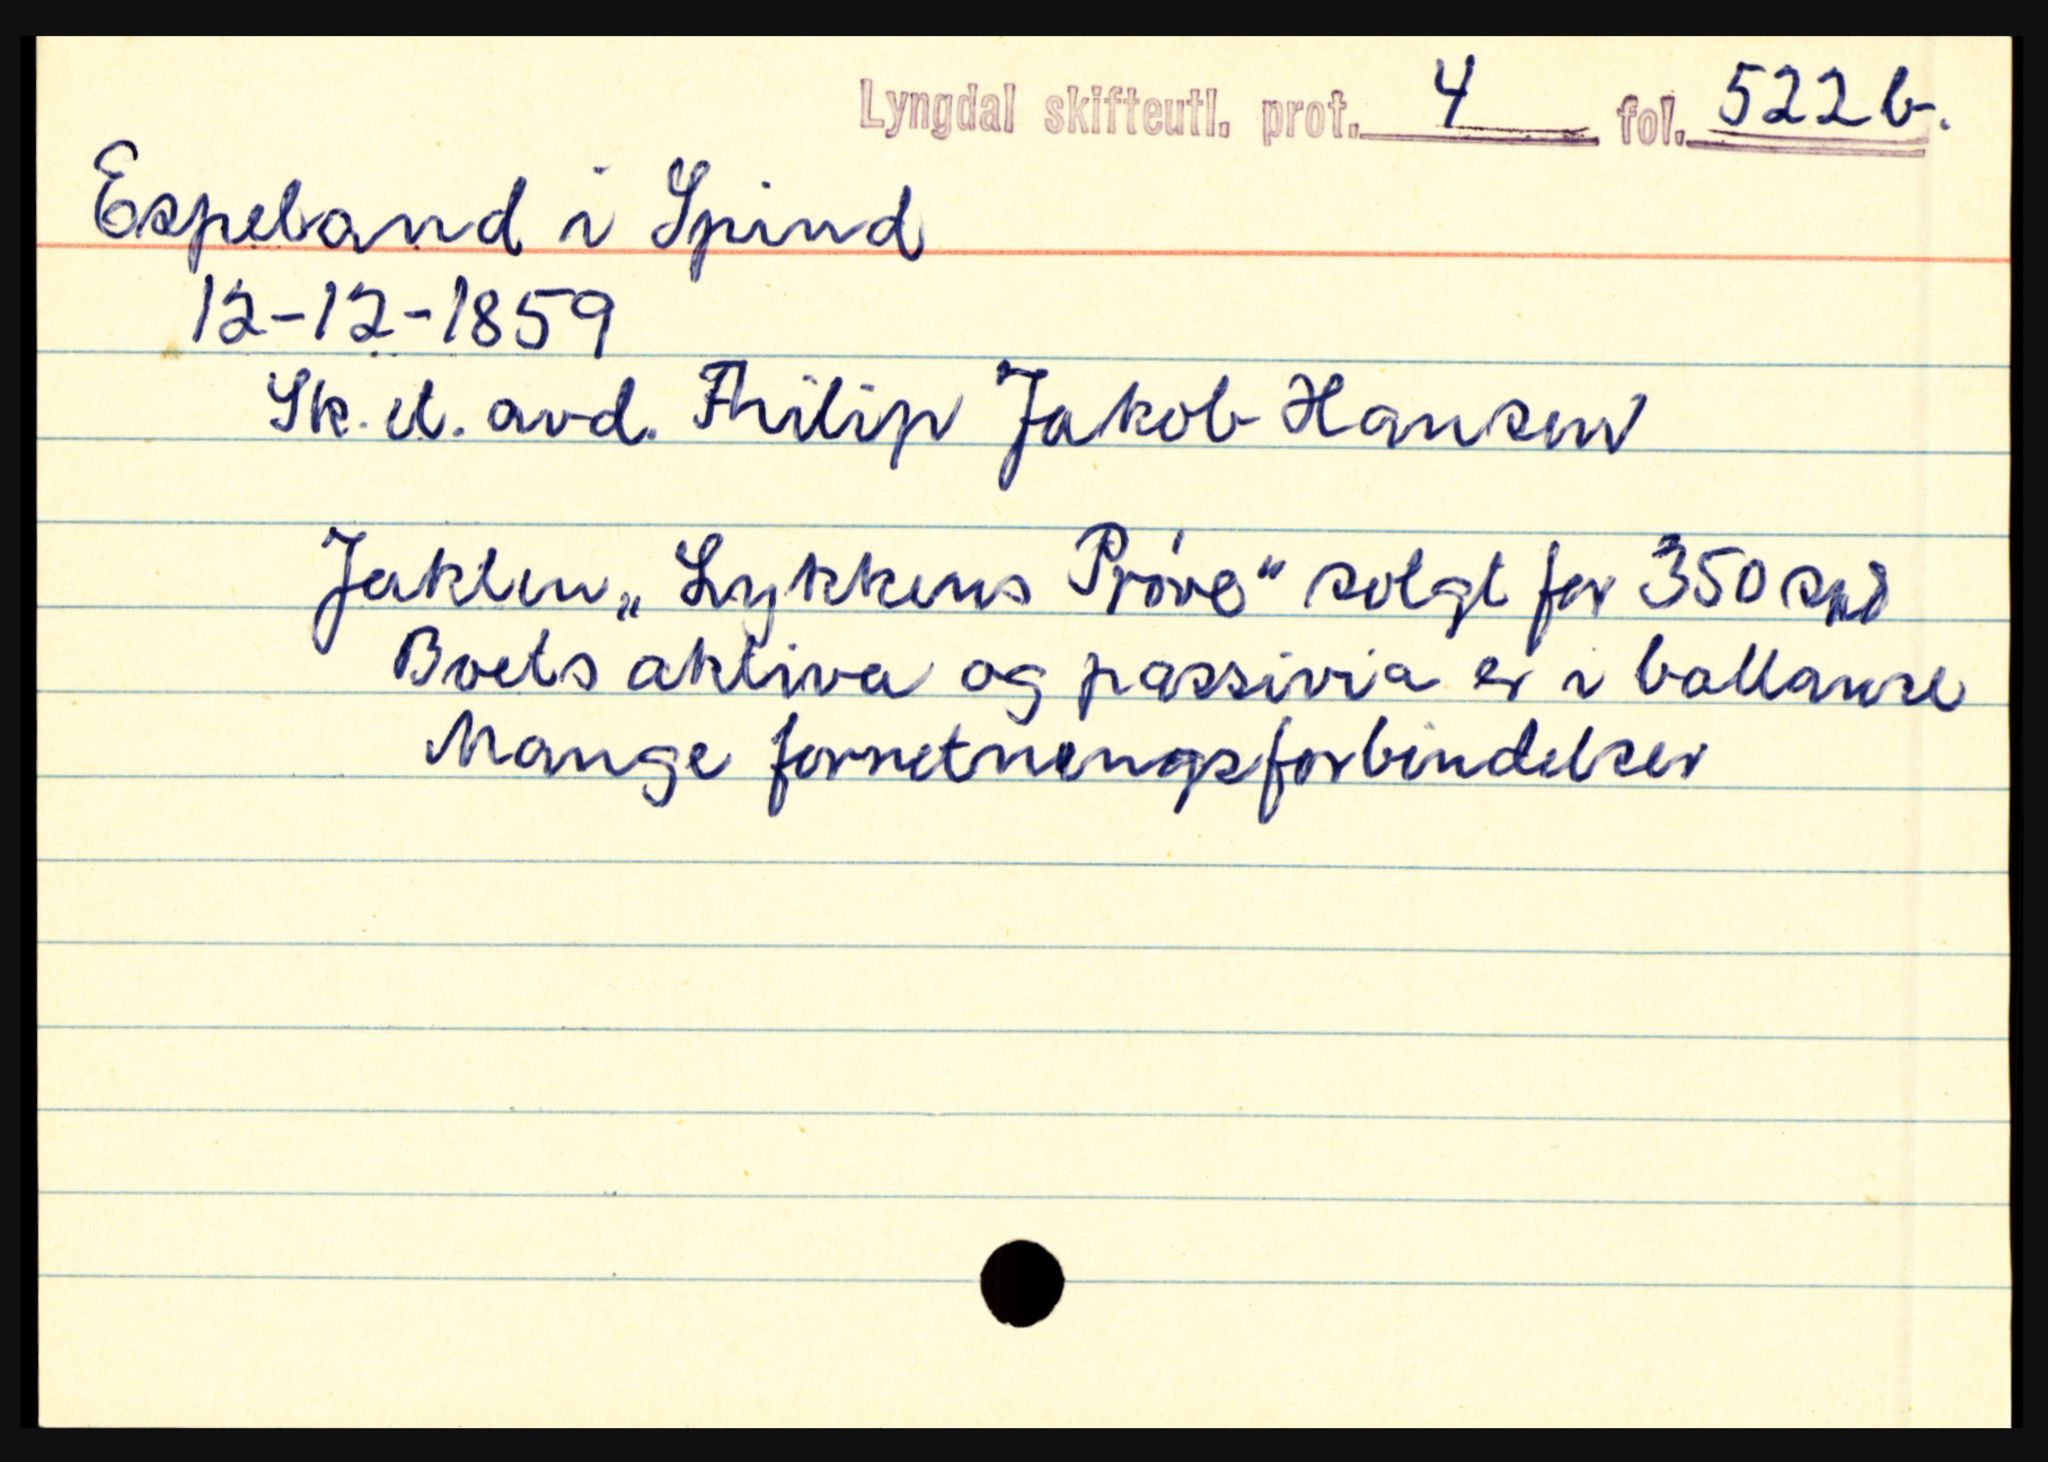 Lyngdal skifteutl. prot. 4 fol. 522b.
Espeland i Spind
12-12-1859
Sk. et. avd. Philip Jakob Hansen
Jakten „Lykkens Prøve“ solgt for 350 spd
Boets aktiva og passivia er i ballanse
Mange forretnengsforbindelser